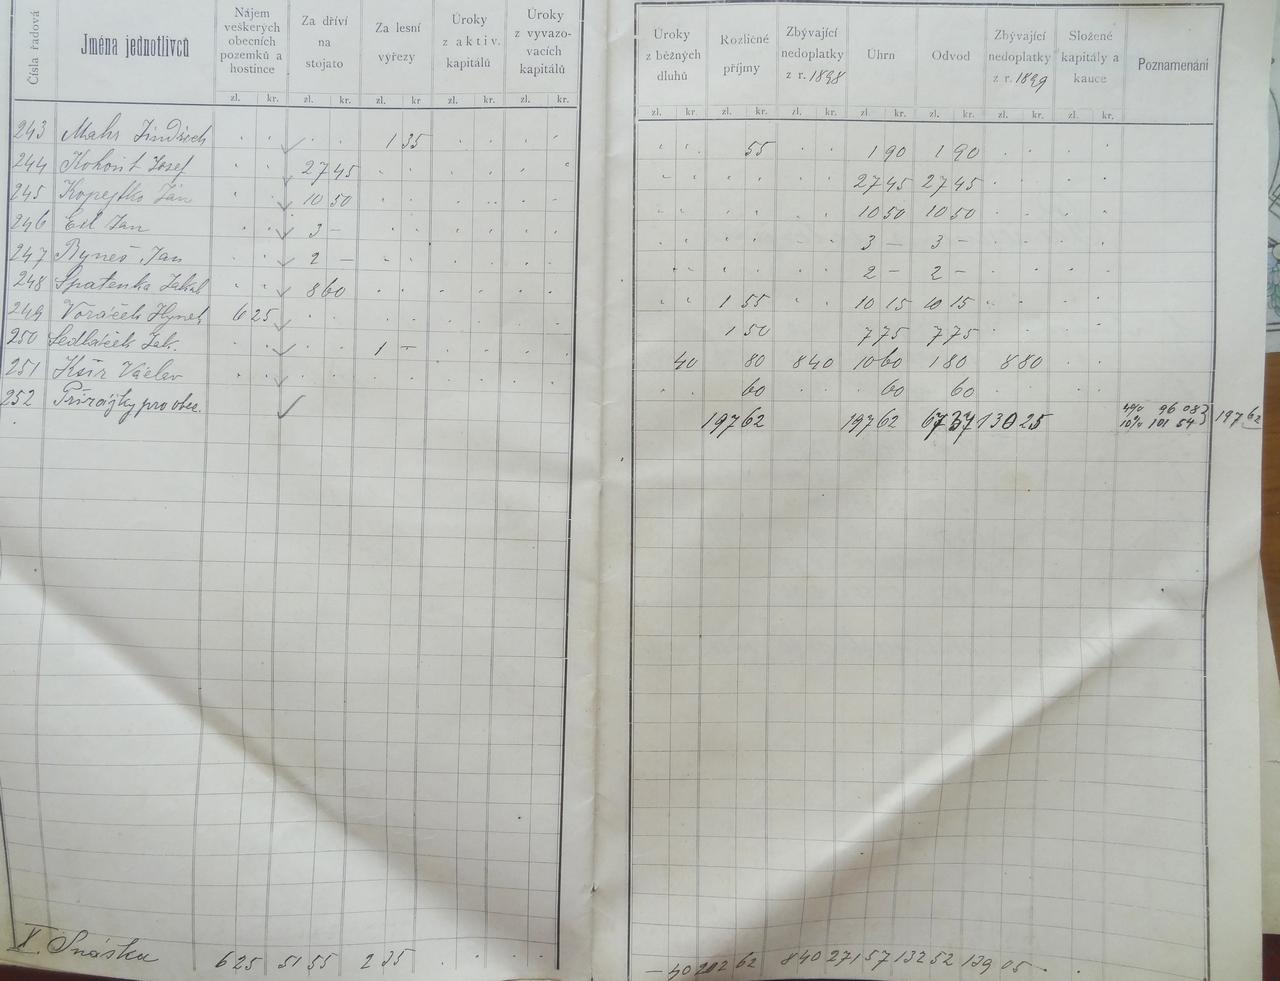 Čísla řadová
Jména jednotlivců
Nájem veškerých obecních pozemků a hostince
Za dříví na stojato
Za lesní výřezy
Úroky z aktiv. kapitálů
Úroky z vyvazovacích kapitálů
Úroky z běžných dluhů
Rozličné příjmy
Zbývající nedoplatky z r. 1898
Úhrn
Odvod
Zbývající nedoplatky z r. 1899
Složené kapitály a kauce
Poznamenání
zl. kr. zl. kr. zl. kr zl. kr. zl. kr. zl. kr. zl. kr. zl. kr. zl. kr. zl. kr. zl. kr. zl. kr.
243 Mahr Jindřich 1 35 55 1 90 1 90
244 Kohout Josef 27 45 27 45 27 45
245 Kopejtko Jan 10 50 10 50 10 50
246 Jan 3 — 3 — 3 —
247 Byneš Jan 2 — 2 — 2 —
248 Špatenka Jakub 8 60 1 55 10 15 10 15
249 Voráček Hynek 6 25 1 50 7 75 7 75
250 Sedláček Jak. 1 — 40 80 8 40 10 60 1 80 8 80
251 Kšír Václav 60 60 60
252 Přirážky pro obec. 197 62 197 62 67 37 130 25 96 08 10% 101 54 } 197 62
X. Snáška 6 25 51 55 2 35 — 40 202 62 8 40 271 57 132 52 139 05